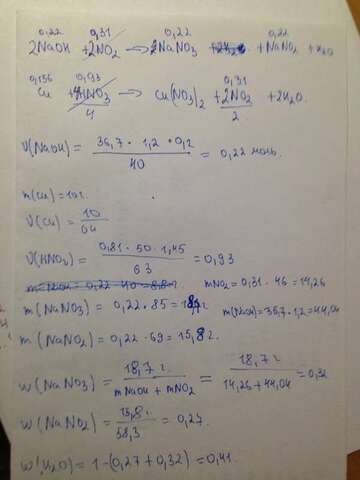 0,22 0,31 0,22 0,22
2NaOH + 2NO2 → 2NaNO3 + NaNO2 + H2O
0,156 0,93 0,31
Cu + 4HNO3 → Cu(NO3)2 + 2NO2 + 2H2O.
4 2
ν(NaOH) = 36,7 · 1,2 · 0,2 / 40 = 0,22 моль.
m(Cu) = 10г.
ν(Cu) = 10 / 64
ν(HNO3) = 0,81 · 50 · 1,45 / 63 = 0,93
mNO2 = 0,31 · 46 = 14,26
m(NaNO3) = 0,22 · 85 = 18,7г m(NaOH) = 36,7 · 1,2 = 44,04
m(NaNO2) = 0,22 · 69 = 15,8г
w(NaNO3) = 18,7г / mNaOH + mNO2 = 18,7г / 14,26 + 44,04 = 0,32
w(NaNO2) = 15,8г / 58,3 = 0,27.
w(H2O) = 1 - (0,27 + 0,32) = 0,41.